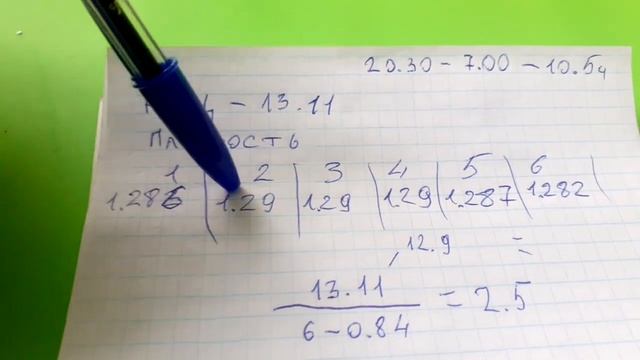 20.30 - 7.00 - 10.5ч
- 13.11
1 2 3 4 5 6
1.286 1.29 1.29 1.29 1.287 1.282
, 12.9 =
13.11
6 - 0.84
= 2.5